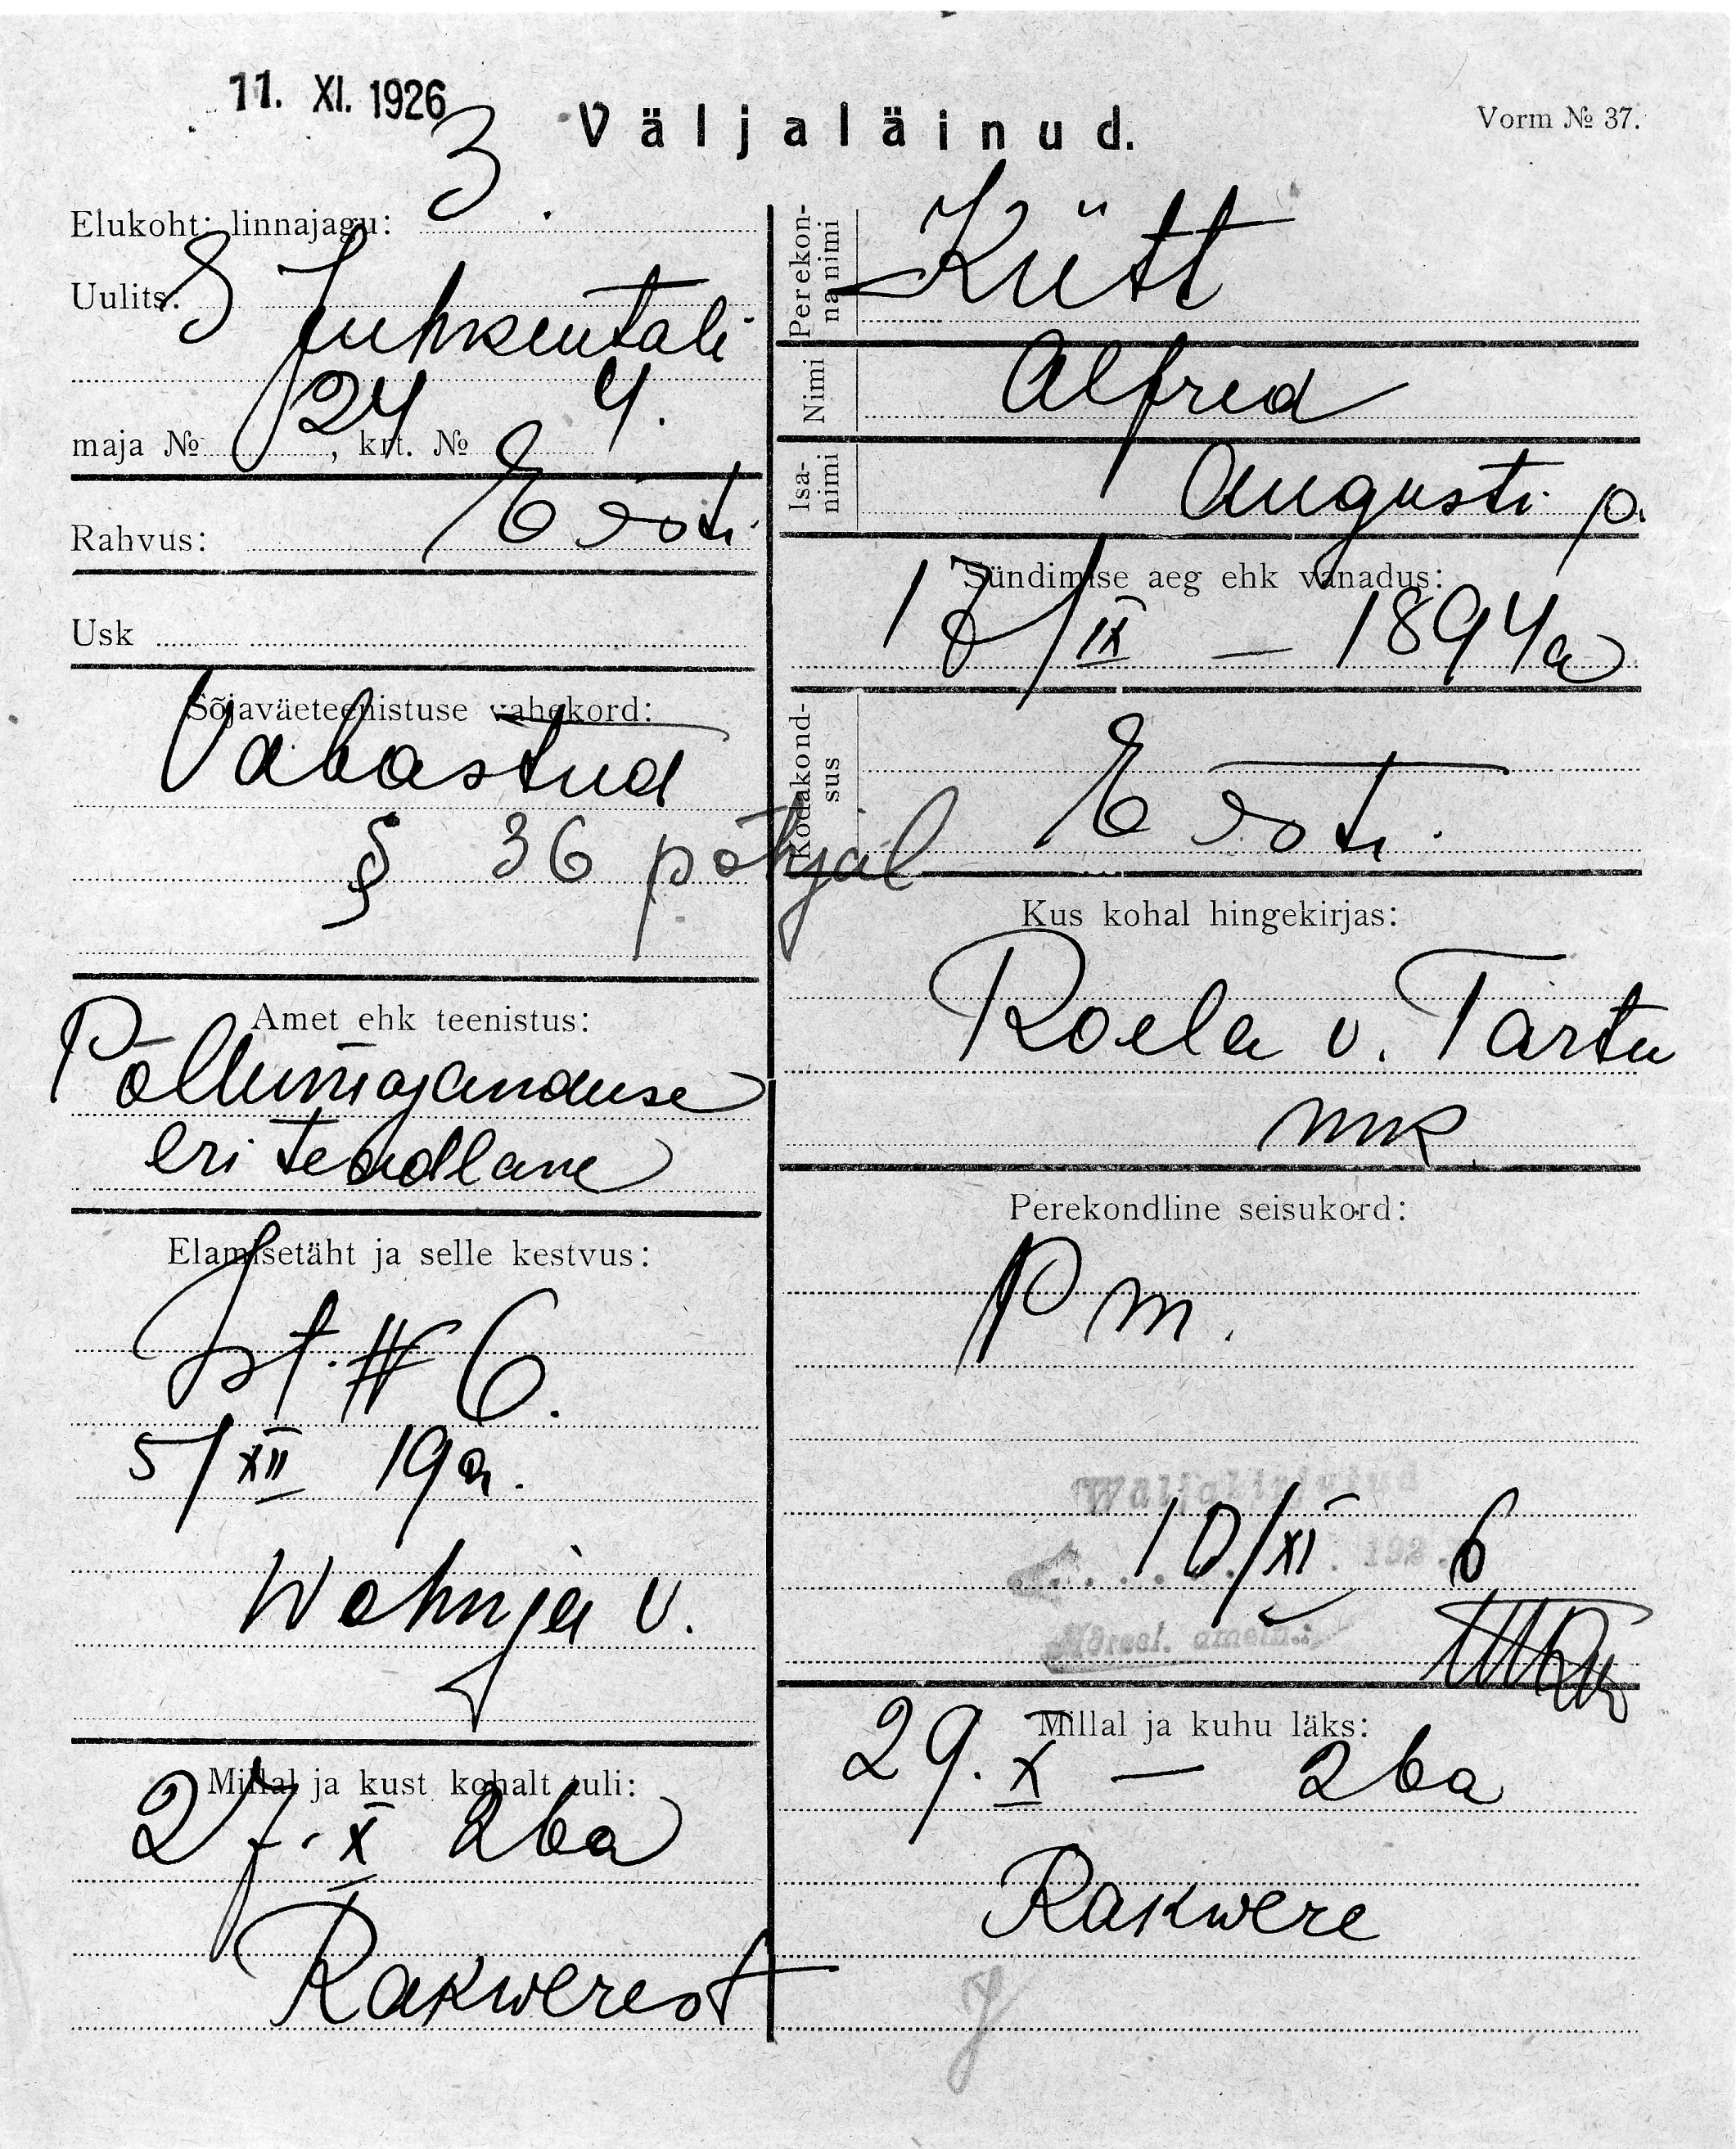 11. XI. 1926
Väljaläinud.
Vorm № 37.
Elukoht: linnajagu: 3
Uulits: Juhkentali
maja № 24, krt. № 4.
Rahvus: Eesti
Usk
Sõjaväeteenistuse vahekord:
Vabastud
§ 36 põhjal
Amet ehk teenistus:
Põllumajanduse
eriteadlane
Elamisetäht ja selle kestvus:
Ist. # 6.
5/XII 19a.
Wohnja v.
Millal ja kust kohalt tuli:
27. X 26a
Rakwerest
Perekonnanimi
Kütt
Nimi
Alfred
Isanimi
Augusti p.
Sündimise aeg ehk vanadus:
/IX — 1894a
Kodakondsus
Eesti.
Kus kohal hingekirjas:
Roela v. Tartu
mk
Perekondline seisukord:
p m.
10/XI 192 6
Millal ja kuhu läks:
29. X — 26a
Rakwere